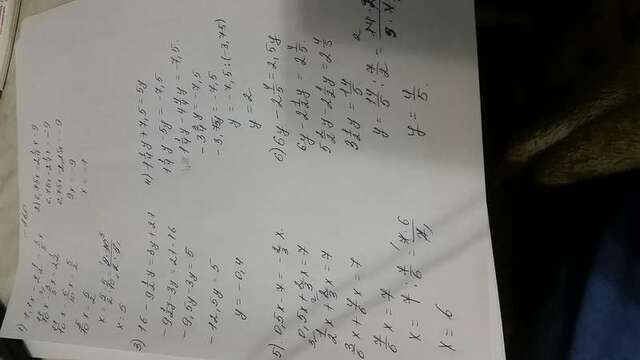 1) 1,1x - 2 1/2 = 3/5 x
11/10 x - 3/5 x = 2 1/2
11/10 x - 6/10 x = 5/2
5/10 x = 5/2
x = 5
2) 0,75x = 2 1/4 x + 9
9x = -9
x = -1
3) 16 - 9 1/2 y = 3y + 21
-9 1/2 y - 3y = 21 - 16
-9,5y - 3y = 5
-12,5y = 5
y = -0,4
4) 1 1/4 y + 7,5 = 5y
1 1/4 y - 5y = -7,5
1 1/4 y - 4 4/4 y = -7,5.
-3 3/4 y = -7,5
-3,75y = -7,5
y = -7,5 : (-3,75)
y = 2
5) 0,5x - 7 = -2/3 x
0,5x + 2/3 x = 7
1/2 x + 2/3 x = 7
3/6 x + 4/6 x = 7
7/6 x = 7
x = 7 : 7/6 = 7·6/7
x = 6
6) 6y - 2 4/5 = 2,5y
6y - 2 1/2 y = 2 4/5.
5 2/2 y - 2 1/2 y = 2 4/5
3 1/2 y = 14/5
y = 14/5 : 7/2 = 14·2/5·7
y = 4/5.